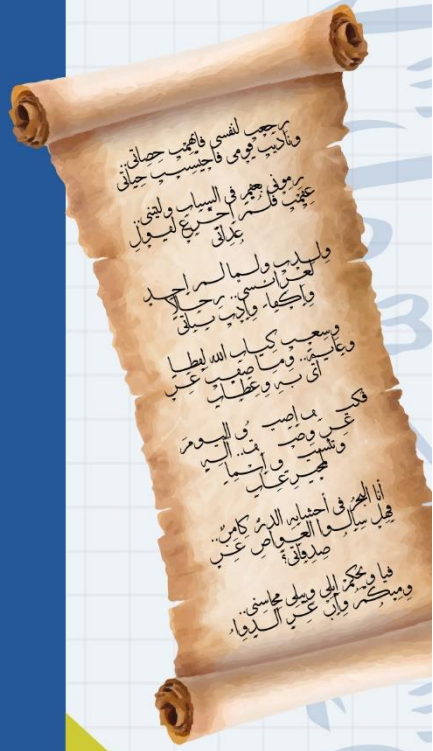 رجعت لنفسي فاتهمت حصاتي..
وناديت قومي فاحتسبت حياتي
رموني بعقم في الشباب وليتني..
عقمت فلم أجزع لقول
عداتي
ولدت ولما لم اجد
لعرائسي.. رجالا
واكفاء وادت بناتي
وسعت كتاب الله لفظا
وغاية.. وما ضقت عن
آي به وعظات
اليوم
عن
أنا البحر في أحشائه الدر كامن..
فهل سألوا الغواص عن
صدفاتي؟
فيا ويحكم ابلى وتبلى محاسني..
ومنكم وإن عز الدواء